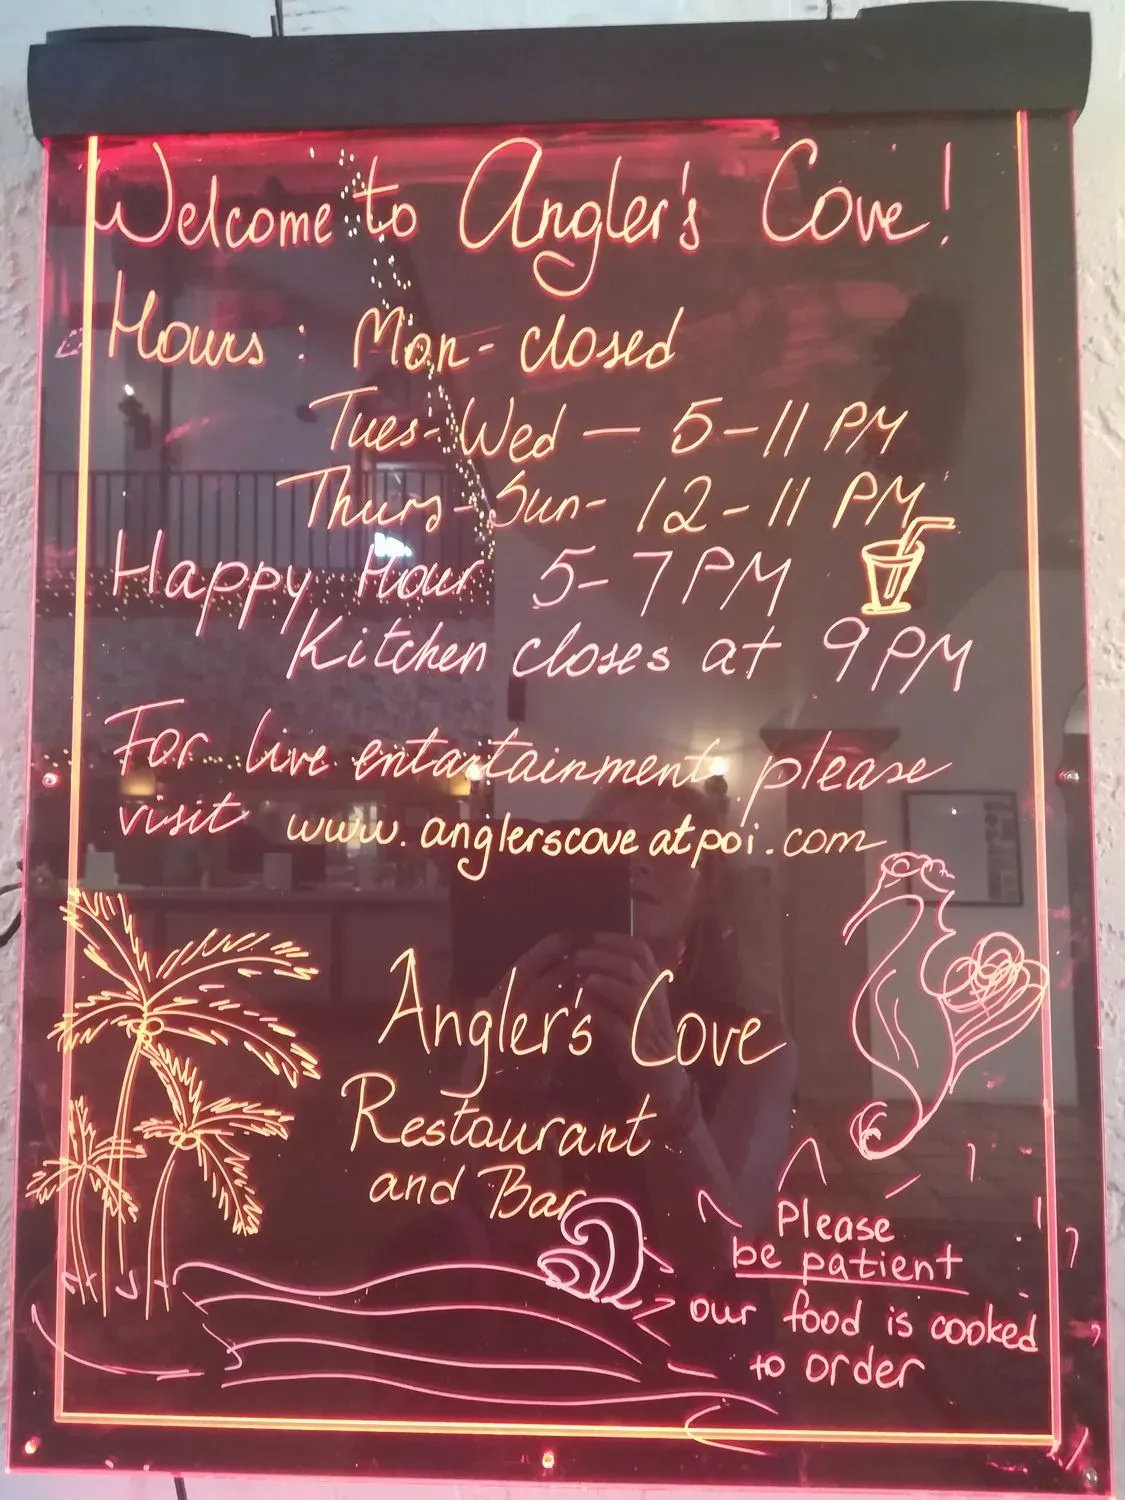 Welcome to Angler's Cove!
Hours: Mon- closed
Tues-Wed — 5-11 PM
Thurs-Sun- 12-11 PM
Happy Hour 5-7 PM
Kitchen closes at 9 PM
For live entartainment please
visit www.anglerscoveatpoi.com
Angler's Cove
Restaurant
and Bar
Please
be patient
our food is cooked
to order